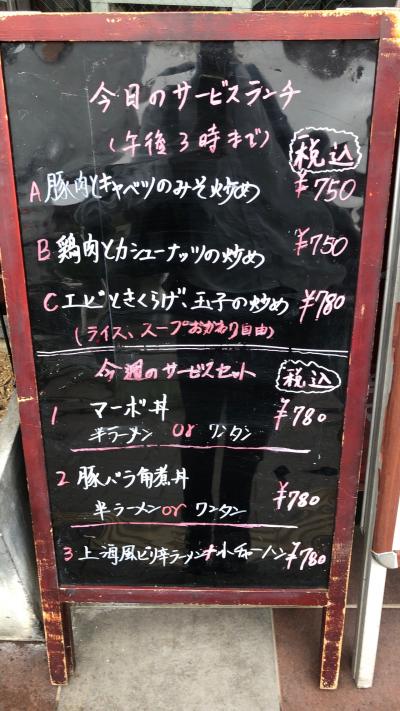 今日のサービスランチ
(午後3時まで) 税込
A 豚肉とキャベツのみそ炒め ¥750
B 鶏肉とカシューナッツの炒め ¥750
C エビときくらげ、玉子の炒め ¥780
(ライス、スープおかわり自由)
今週のサービスセット 税込
1 マーボ丼 ¥780
半ラーメン or ワンタン
2 豚バラ角煮丼 ¥780
半ラーメン or ワンタン
3 上海風ピリ辛ラーメン+小チャーハン ¥780